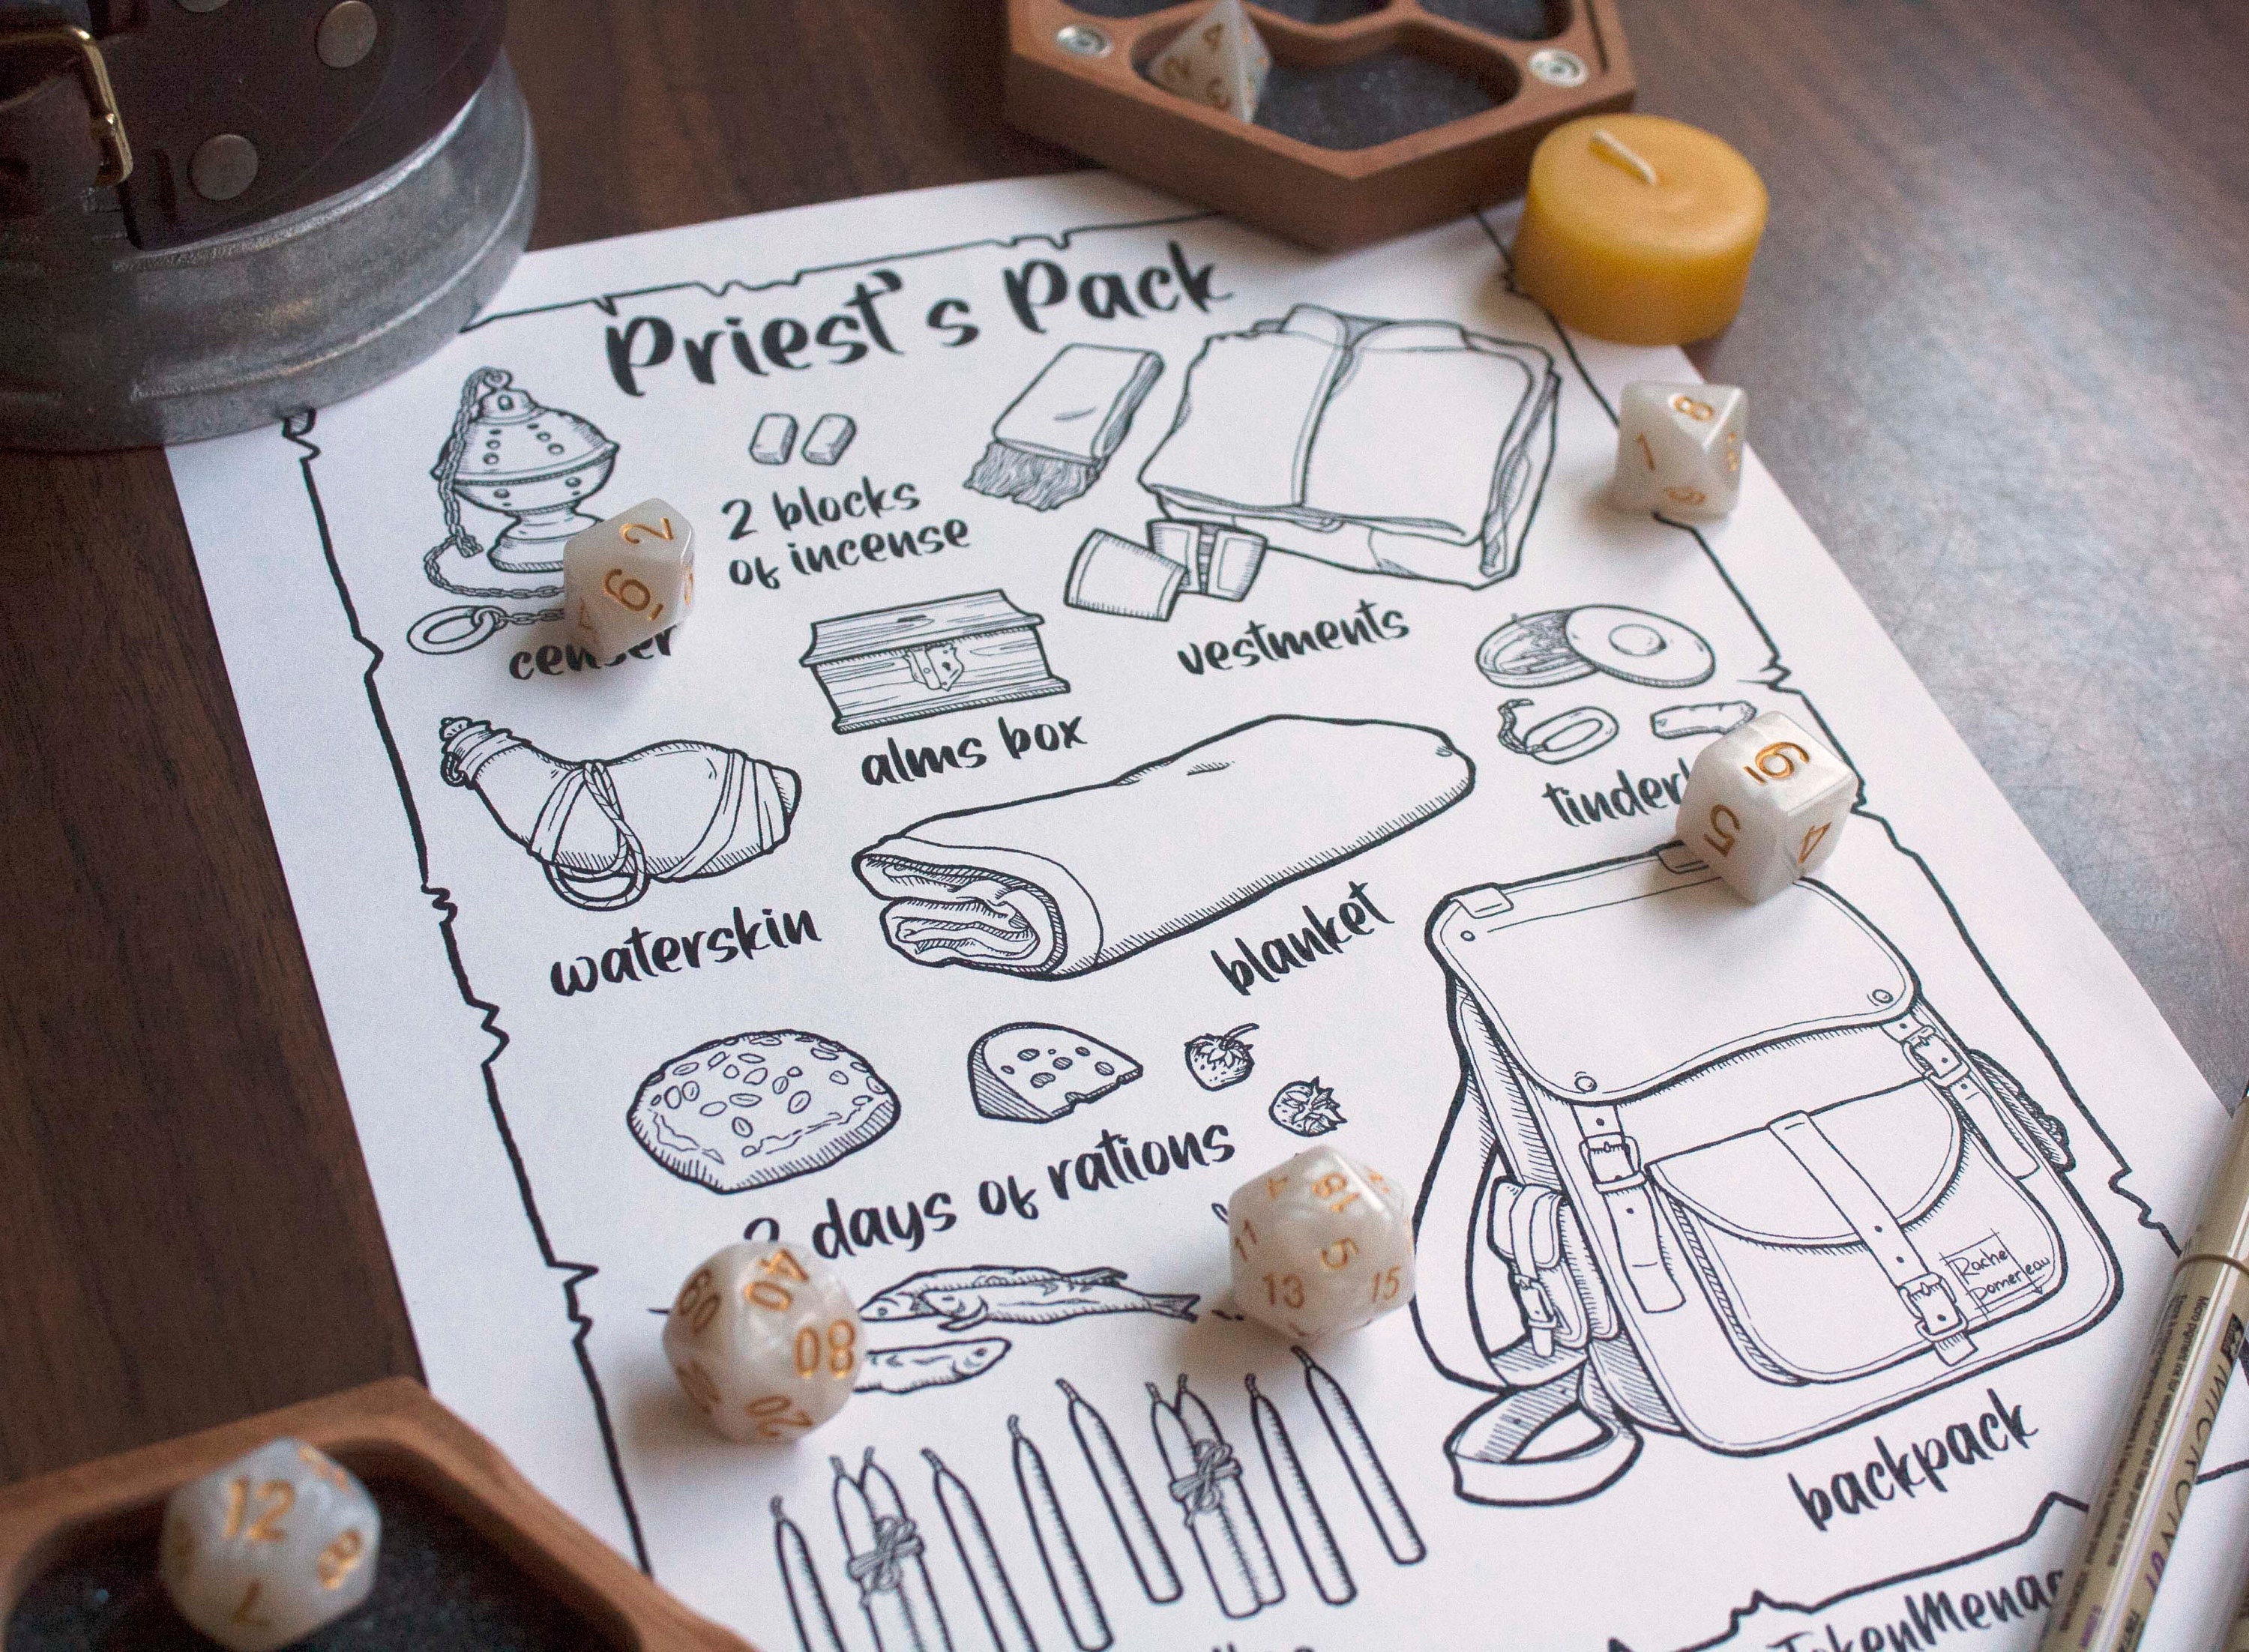 Priest's Pack
2 blocks
of incense
censer
vestments
alms box
waterskin
blanket
days of rations
backpack
Rachel
Pomerleau
4
2
8
1
2
6
6
5
4
18
11
5
13
15
40
80
20
12
8
7